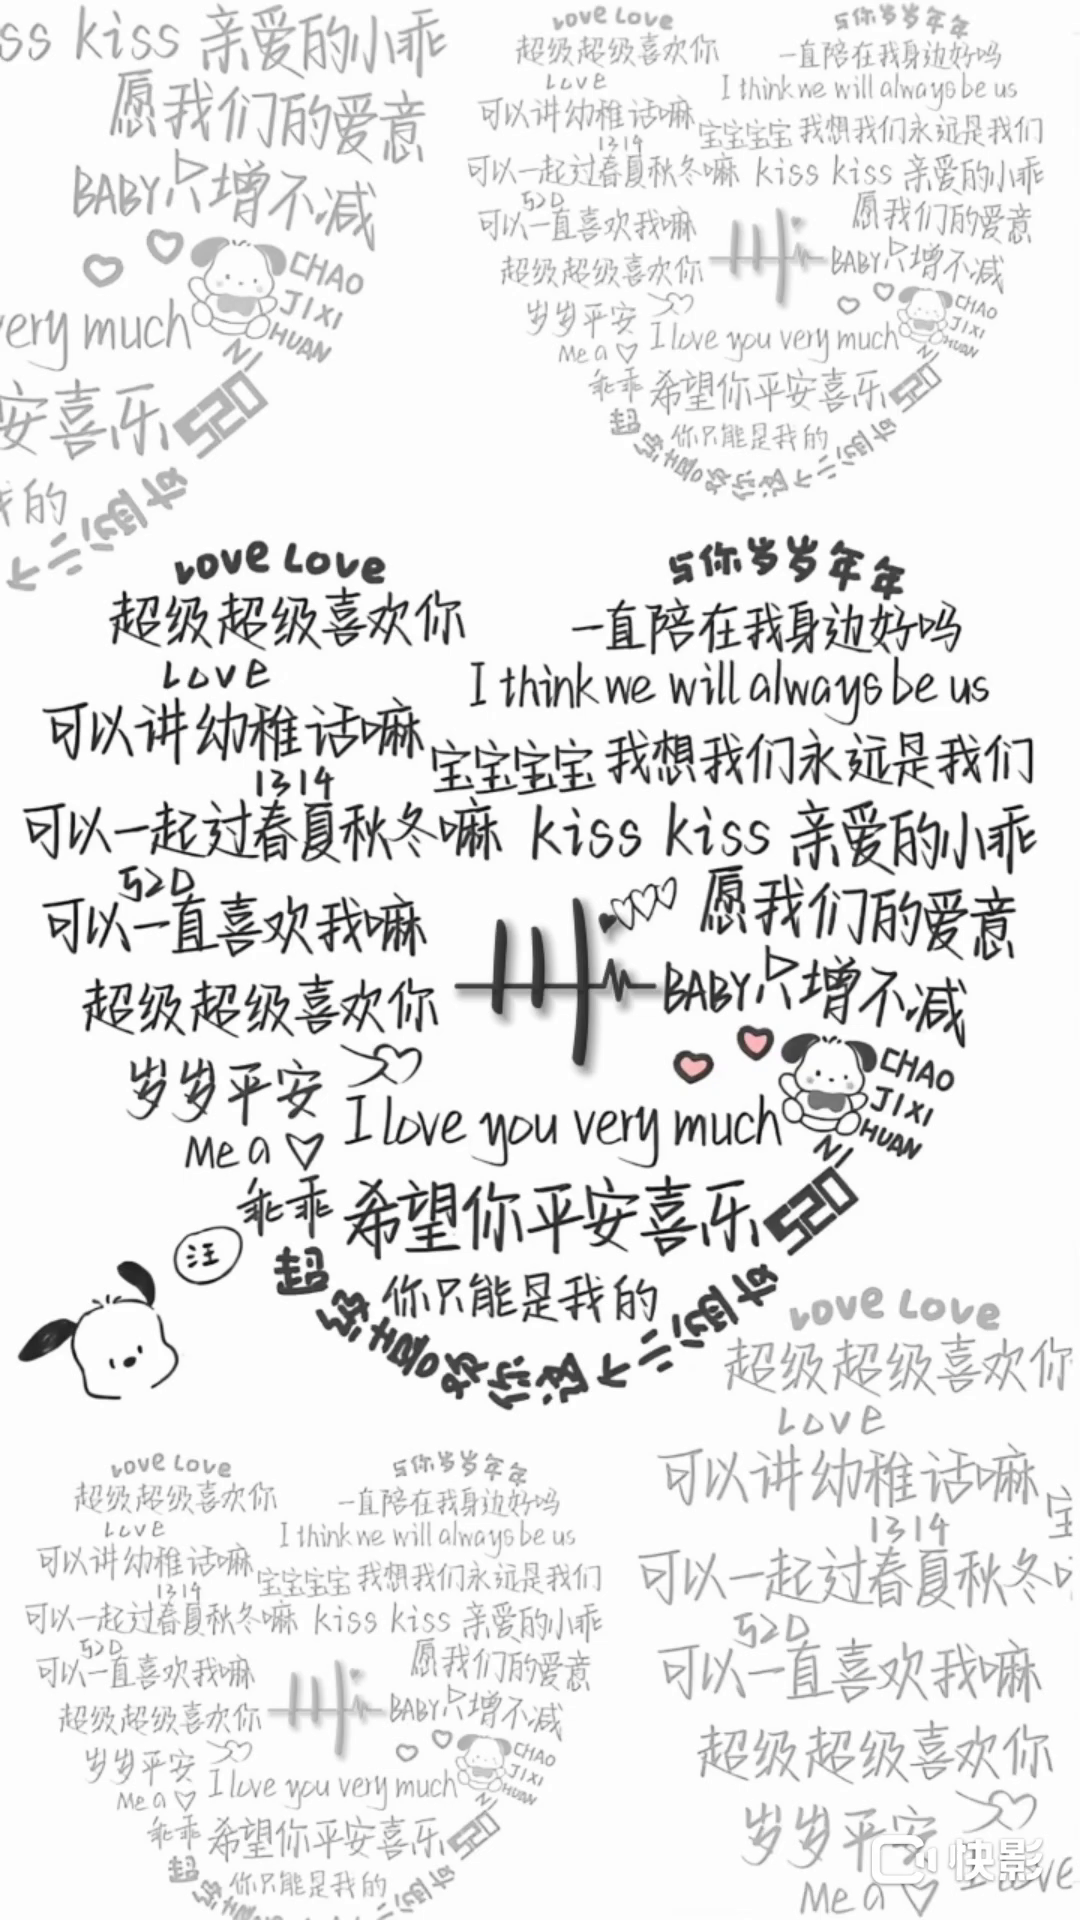 ss kiss 亲爱的小乖
愿我们的爱意
BABY只增不减
CHAO
JIXI
HUAN
NI
very much
安喜乐 520
我的
个小可爱
Love Love
与你岁岁年年
超级超级喜欢你
一直陪在我身边好吗
Love
I think we will always be us
可以讲幼稚话嘛
宝宝宝宝 我想我们永远是我们
1314
可以一起过春夏秋冬嘛 kiss kiss 亲爱的小乖
520
愿我们的爱意
可以一直喜欢我嘛
BABY只增不减
超级超级喜欢你
CHAO
JIXI
HUAN
NI
岁岁平安
I love you very much
Me a
乖乖 希望你平安喜乐 520
你只能是我的
Love Love
与你岁岁年年
超级超级喜欢你
一直陪在我身边好吗
Love
I think we will always be us
可以讲幼稚话嘛
宝宝宝宝 我想我们永远是我们
1314
可以一起过春夏秋冬嘛 kiss kiss 亲爱的小乖
520
愿我们的爱意
可以一直喜欢我嘛
BABY只增不减
超级超级喜欢你
CHAO
JIXI
HUAN
NI
岁岁平安
I love you very much
Me a
乖乖 希望你平安喜乐 520
你只能是我的
超级喜欢你这个
汪
Love Love
超级超级喜欢你
Love
可以讲幼稚话嘛
1314
可以一起过春夏秋冬
520
可以一直喜欢我嘛
超级超级喜欢你
岁岁平安
Me a
I love
Love Love
与你岁岁年年
超级超级喜欢你
一直陪在我身边好吗
Love
I think we will always be us
可以讲幼稚话嘛
宝宝宝宝 我想我们永远是我们
1314
可以一起过春夏秋冬嘛 kiss kiss 亲爱的小乖
520
愿我们的爱意
可以一直喜欢我嘛
BABY只增不减
超级超级喜欢你
CHAO
JIXI
HUAN
NI
岁岁平安
I love you very much
Me a
乖乖 希望你平安喜乐 520
你只能是我的
快影